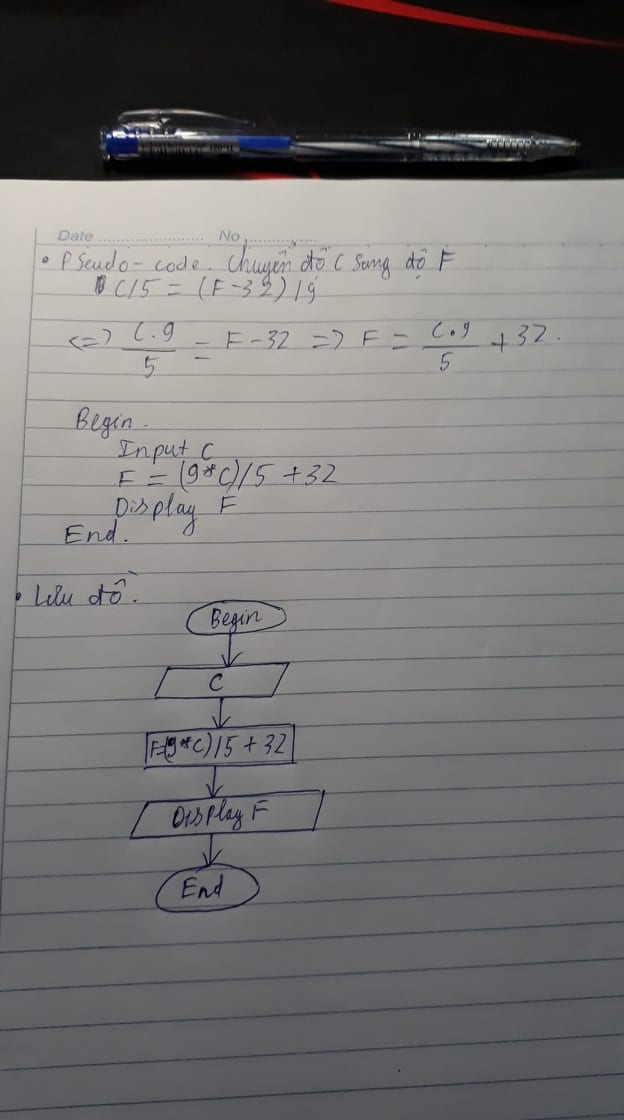 Date ........................ No ................
• Pseudo-code. Chuyển độ C sang độ F
C/5 = (F-32)/9
<=> C.9/5 = F-32 => F = C.9/5 + 32.
Begin.
Input C
F = (9*C)/5 +32
Display F
End.
• Lưu đồ.
Begin
C
F=(9*C)/5 + 32
Display F
End